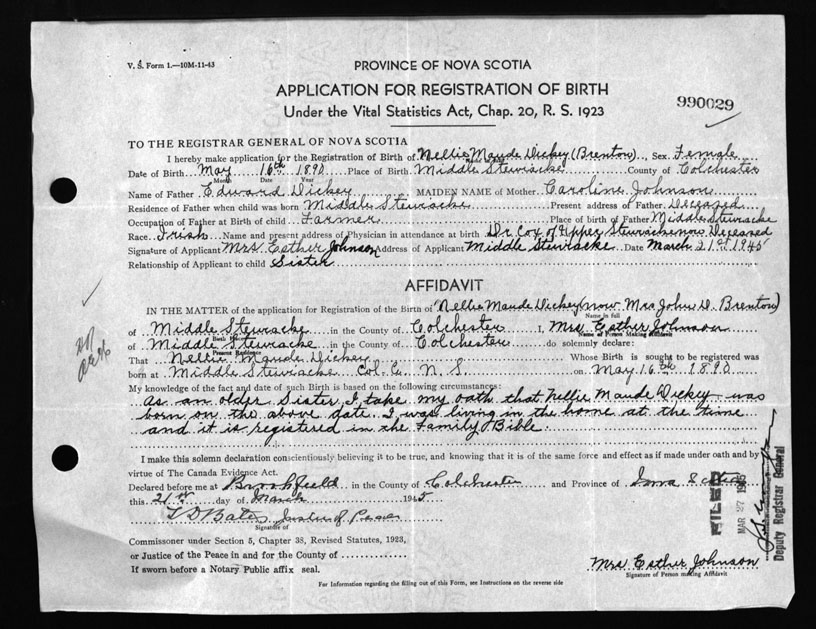 V. S. Form 1.—10M-11-43
PROVINCE OF NOVA SCOTIA
APPLICATION FOR REGISTRATION OF BIRTH
Under the Vital Statistics Act, Chap. 20, R. S. 1923
990029
TO THE REGISTRAR GENERAL OF NOVA SCOTIA
I hereby make application for the Registration of Birth of Nellie Maude Dickey (Brenton), Sex, Female
Date of Birth May 16th 1890 Place of Birth Middle Stewiacke County of Colchester
Month Date Year
Name of Father Edward Dickey MAIDEN NAME of Mother Caroline Johnson
Residence of Father when child was born Middle Stewiacke Present address of Father Deceased
Occupation of Father at Birth of child Farmer Place of birth of Father Middle Stewiacke
Race Irish Name and present address of Physician in attendance at birth Dr Cox of Upper Stewiacke now Deceased
Signature of Applicant Mrs Esther Johnson Address of Applicant Middle Stewiacke Date March 21st 1945
Relationship of Applicant to child Sister
AFFIDAVIT
IN THE MATTER of the application for Registration of the Birth of Nellie Maude Dickey (now Mrs John D. Brenton)
Name in full
of Middle Stewiacke in the County of Colchester I, Mrs Esther Johnson
Birth Place Name of Person Making Affidavit
of Middle Stewiacke in the County of Colchester do solemnly declare:
Present Residence
That Nellie Maude Dickey Whose Birth is sought to be registered was
born at Middle Stewiacke Col. Co. N. S. on May 16th 1890
My knowledge of the fact and date of such Birth is based on the following circumstances:
As an older Sister, I take my oath that Nellie Maude Dickey was
born on the above date. I was living in the home at the time
and it is registered in the Family Bible.
I make this solemn declaration conscientiously believing it to be true, and knowing that it is of the same force and effect as if made under oath and by
virtue of The Canada Evidence Act.
Declared before me at Brookfield in the County of Colchester and Province of Nova Scotia
this 21st day of March 1945
Bates Justice of Peace
Signature of
Commissioner under Section 5, Chapter 38, Revised Statutes, 1923,
or Justice of the Peace in and for the County of
If sworn before a Notary Public affix seal.
Mrs Esther Johnson
Signature of Person making Affidavit
For Information regarding the filling out of this Form, see Instructions on the reverse side
FILED
MAR 27 1945
Deputy Registrar General